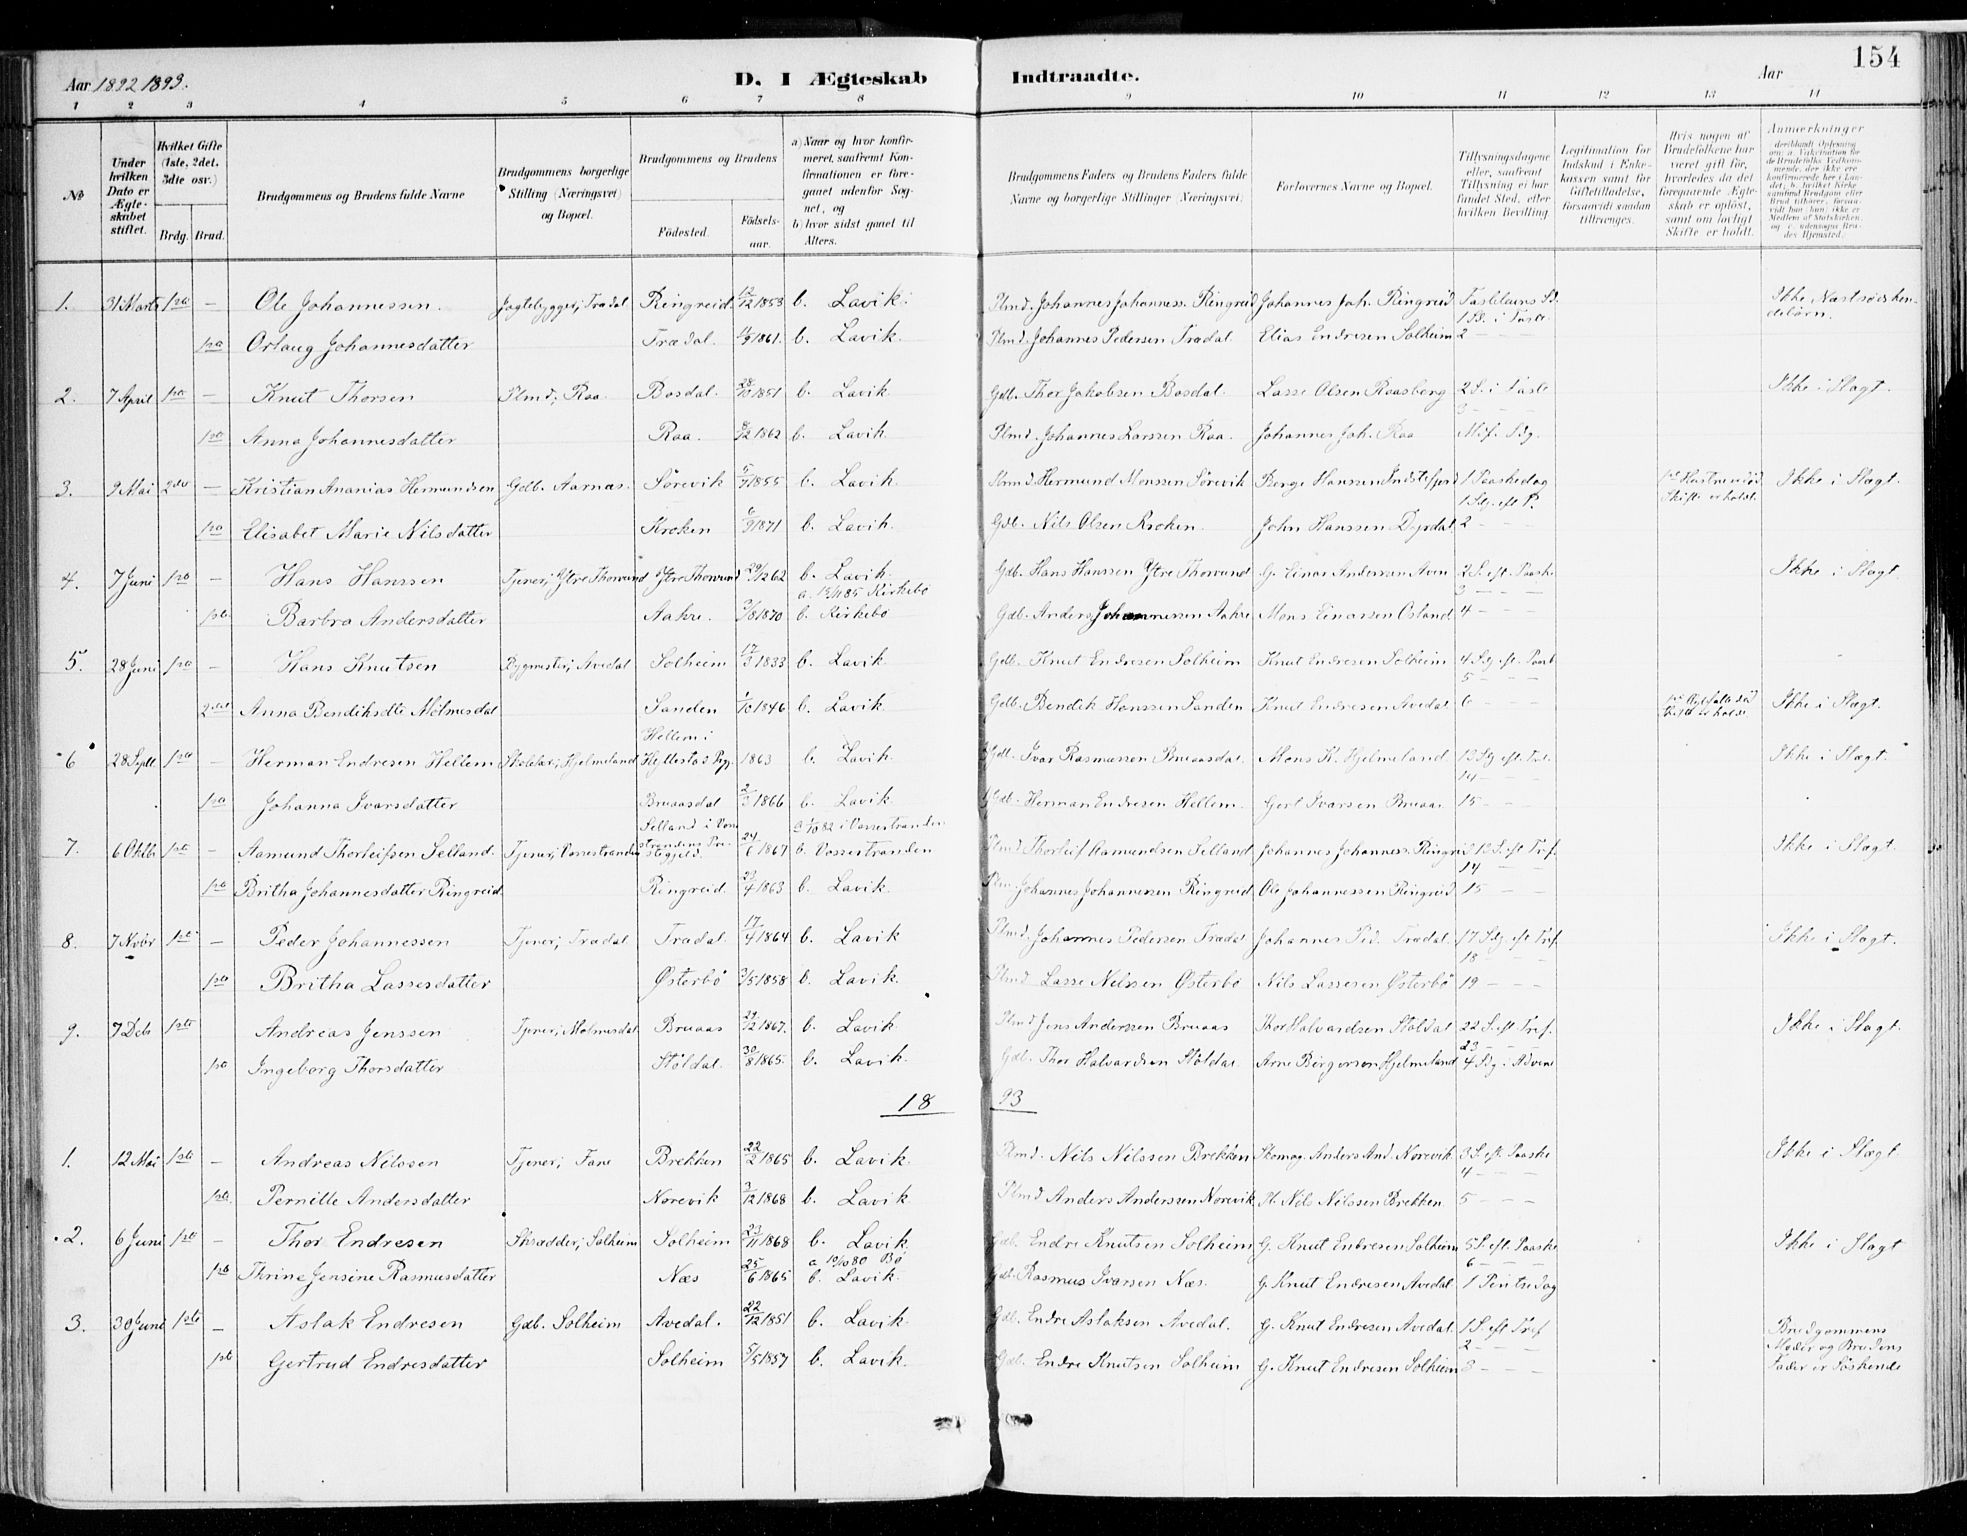 154
Aar 1892 1893.
D. I Ægteskab Indtraadte.
Aar
1 2 3 4 5 6 7 8 9 10 11 12 13 14
№
Under hvilken Dato er Ægteskabet stiftet.
Hvilket Gifte (1ste, 2det, 3die osv.)
Brdg. Brud.
Brudgommens og Brudens fulde Navne
Brudgommens borgerlige Stilling (Næringsvei) og Bopæl.
Brudgommens og Brudens
Födested. Födselsaar.
a) Naar og hvor konfirmeret, saafremt Konfirmationen er foregaaet udenfor Sognet, og
b) hvor sidst gaaet til Alters.
Brudgommens Faders og Brudens Faders fulde Navne og borgerlige Stillinger (Næringsvei)
Forlovernes Navne og Bopæl.
Tillysningsdagene eller, saafremt Tillysning ei har fundet Sted, efter hvilken Bevilling.
Legitimation for Indskud i Enkekassen samt for Giftetilladelse, forsaavidt saadan tiltrænges.
Hvis nogen af Brudefolkene har været gift för, hvorledes da det foregaaende Ægteskab er oplöst, samt om lovligt Skifte er holdt.
Anmerkninger
1. 31 Marts 1ste — Ole Johannessen. Jagtebygger, Trædal Ringreid 12/12 1853 b. Lavik. Plmd. Johannes Johanness. Ringreid Johannes Joh. Ringreid Ikke Næstsødskendebørn.
1ste Orlaug Johannesdatter Trædal. 1861. b. Lavik. Plmd. Johannes Pedersen Trædal. Elias Endresen Solheim 2 — —
2. 7 April 1ste — Knut Thorsen Plmd; Raa. Bosdal. 28/10 1851 b. Lavik. Gdb. Thor Jakobsen Bosdal. Lasse Olsen Raasberg 2 S. i Faste Ikke i Slægt.
3 — —
1ste Anna Johannesdatter Raa. 1862 b. Lavik. Plmd. Johannes Larssen Raa. Johannes Joh. Raa
3. 9 Mai 2det — Kristian Ananias Hermundsen Gdb. Aarnæs. Sörevik 5/9 1855 b. Lavik. Plmd. Hermund Monssen Sörevik Berge Hanssen Indstefjord 1 Paaskedag Skifte er holdt. Ikke i Slægt.
1 Sdg. eft. P.
1ste Elisabet Marie Nilsdatter Kroken 6/9 1871 b. Lavik. Gdb. Nils Olsen Kroken. John Hanssen Dyrdal 2 — —
4. 7 Juni 1ste — Hans Hanssen Tjener; Ytre Thorvund Ytre Thorvund 29/12 62 b. Lavik. Gdb. Hans Hanssen Ytre Thorvund G. Einar Anderssen Aven 2 S. eft. Paaske Ikke i Slægt.
a. 85 Kirkebø 3 — —
1ste Barbra Andersdatter Aahre. 1870 b. Kirkebø Gdb. Anders Johannessen Aahre Mons Einarsen Osland 4 — —
5. 28 Juni 1ste — Hans Knutsen Bygmester; Avedal Solheim 17/3 1833 b. Lavik Gdb. Knut Endresen Solheim Knut Endresen Solheim 4 Sdg. eft. Paask
5 — —
2det Anna Bendiksdtr Molmesdal Sanden 1/10 1846 b. Lavik. Gdb. Bendik Hanssen Sanden Knut Endresen Avedal 6 — — Ikke i Slægt.
Hellem i
6 28 Sept 1ste — Herman Endresen Hellem Skolelær; Hjelmeland Hyllestad Prg. 1863 b. Lavik Gdb. Ivar Rasmussen Bruaasdal Mons K. Hjelmeland 13 Sdg. eft. Tref. Ikke i Slægt.
14 — —
1ste Johanna Ivarsdatter Bruaasdal 2/3 1866 b. Lavik Gdb. Herman Endresen Hellem. Gert Ivarsen Bruaas 15 — —
Selland i Vossestrandens Præstegjeld. a 1/10 82 i Vossestranden
7. 6 Oktb 1ste — Aamund Thorleifsen Selland. Tjener; Vossestranden 24/6 1867 b. Vossestranden Plmd Thorleif Aamundsen Selland Johannes Johanness. Ringreid 13 S. eft Tref. Ikke i Slægt.
14 — —
1ste Britha Johannesdatter Ringreid Ringreid. 23/4 1863 b. Lavik. Plmd. Johannes Johannessen Ringreid Ole Johannessen Ringreid. 15 — —
8. 7 Nvbr 1ste — Peder Johannessen Tjener; Trædal. Trædal. 17/4 1864 b. Lavik Plmd. Johannes Pedersen Trædal Johannes Ped. Trædal. 17 Sdg. eft Tref. Ikke i Slægt.
18 — —
1ste Britha Lassesdatter Østerbö 3/5 1858 b. Lavik. Plmd Lasse Nilssen Østerbö Nils Lassesen Østerbö 19 — —
9. 7 Deb 1ste Andreas Jenssen Tjener; Molmesdal. Bruaas 21/12 1867. b. Lavik Plmd Jens Anderssen Bruaas Thor Halvardsen Stöldal 22 S. eft Tref. Ikke i Slægt.
23 — —
1ste Ingeborg Thorsdatter Stöldal 30/8 1865. b. Lavik. Gdb. Thor Halvardsen Stöldal Arne Bergersen Hjelmeland 4 Sdg i Advent
18 93
1. 12 Mai 1ste — Andreas Nilssen Tjener; Fane Brekken 22/2 1865 b. Lavik. Plmd. Nils Nilssen Brekken Skomag. Anders And. Norevik 3 S. eft. Paaske Ikke i Slægt
4 — —
1ste. Pernille Andersdatter Norevik 3/12 1868 b. Lavik Plmd Anders Anderssen Norevik Pl. Nils Nilssen Brekken 5 — —
2. 6 Juni 1ste — Thor Endresen Skrædder; Solheim Solheim 23/11 1868 b. Lavik. Gdb. Endre Knutsen Solheim G. Knut Endresen Solheim 5 S. eft. Paaske Ikke i Slægt
a 10/10 80 Bø 6 — —
1ste Thrine Jensine Rasmusdatter Næs 25/6 1865 b. Lavik. Gdb. Rasmus Ivarsen Næs. G. Knut Endresen Avedal 1 Pintsedag
3. 30 Juni 1ste — Aslak Endresen Gdb. Solheim Avedal. 22/12 1851 b. Lavik Gdb. Endre Aslaksen Avedal. G. Knut Endresen Avedal 1 S. eft Tref Brudgommens
2 — — Moder og Brudens
1ste Gertrud Endresdatter Solheim 5/5 1857 b. Lavik. Gdb. Endre Knutsen Solheim G. Knut Endresen Solheim 3 — — Fader er Söskende